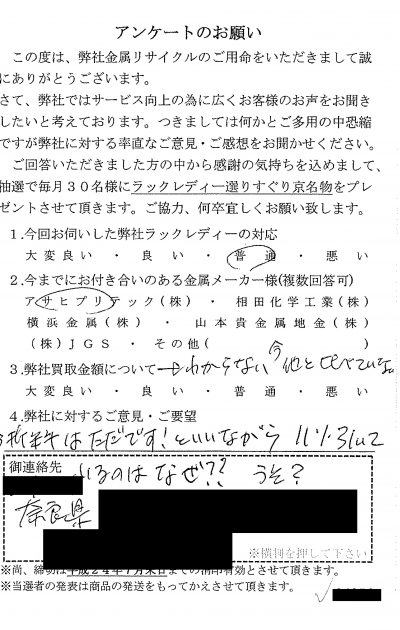 アンケートのお願い
この度は、弊社金属リサイクルのご用命をいただきまして誠
にありがとうございます。
さて、弊社ではサービス向上の為に広くお客様のお声をお聞き
したいと考えております。つきましては何かとご多用の中恐縮
ですが弊社に対する率直なご意見・ご感想をお聞かせください。
ご回答いただきました方の中から感謝の気持ちを込めまして、
抽選で毎月３０名様にラックレディー選りすぐり京名物をプレ
ゼントさせて頂きます。ご協力、何卒宜しくお願い致します。
１.今回お伺いした弊社ラックレディーの対応
大変良い ・ 良い ・ 普通 ・ 悪い
２.今までにお付き合いのある金属メーカー様(複数回答可)
アサヒプリテック(株) ・ 相田化学工業(株)
横浜金属(株) ・ 山本貴金属地金(株)
(株)ＪＧＳ ・ その他( )
３.弊社買取金額について→わからない 今 他とくらべている
大変良い ・ 良い ・ 普通 ・ 悪い
４.弊社に対するご意見・ご要望
分析料はただです!といいながら 11%引いて
御連絡先 いるのはなぜ?? うそ?
奈良県
※横判を押して下さい
※尚、締切は平成２４年７月末日までの消印有効とさせて頂きます。
※当選者の発表は商品の発送をもってかえさせて頂きます。